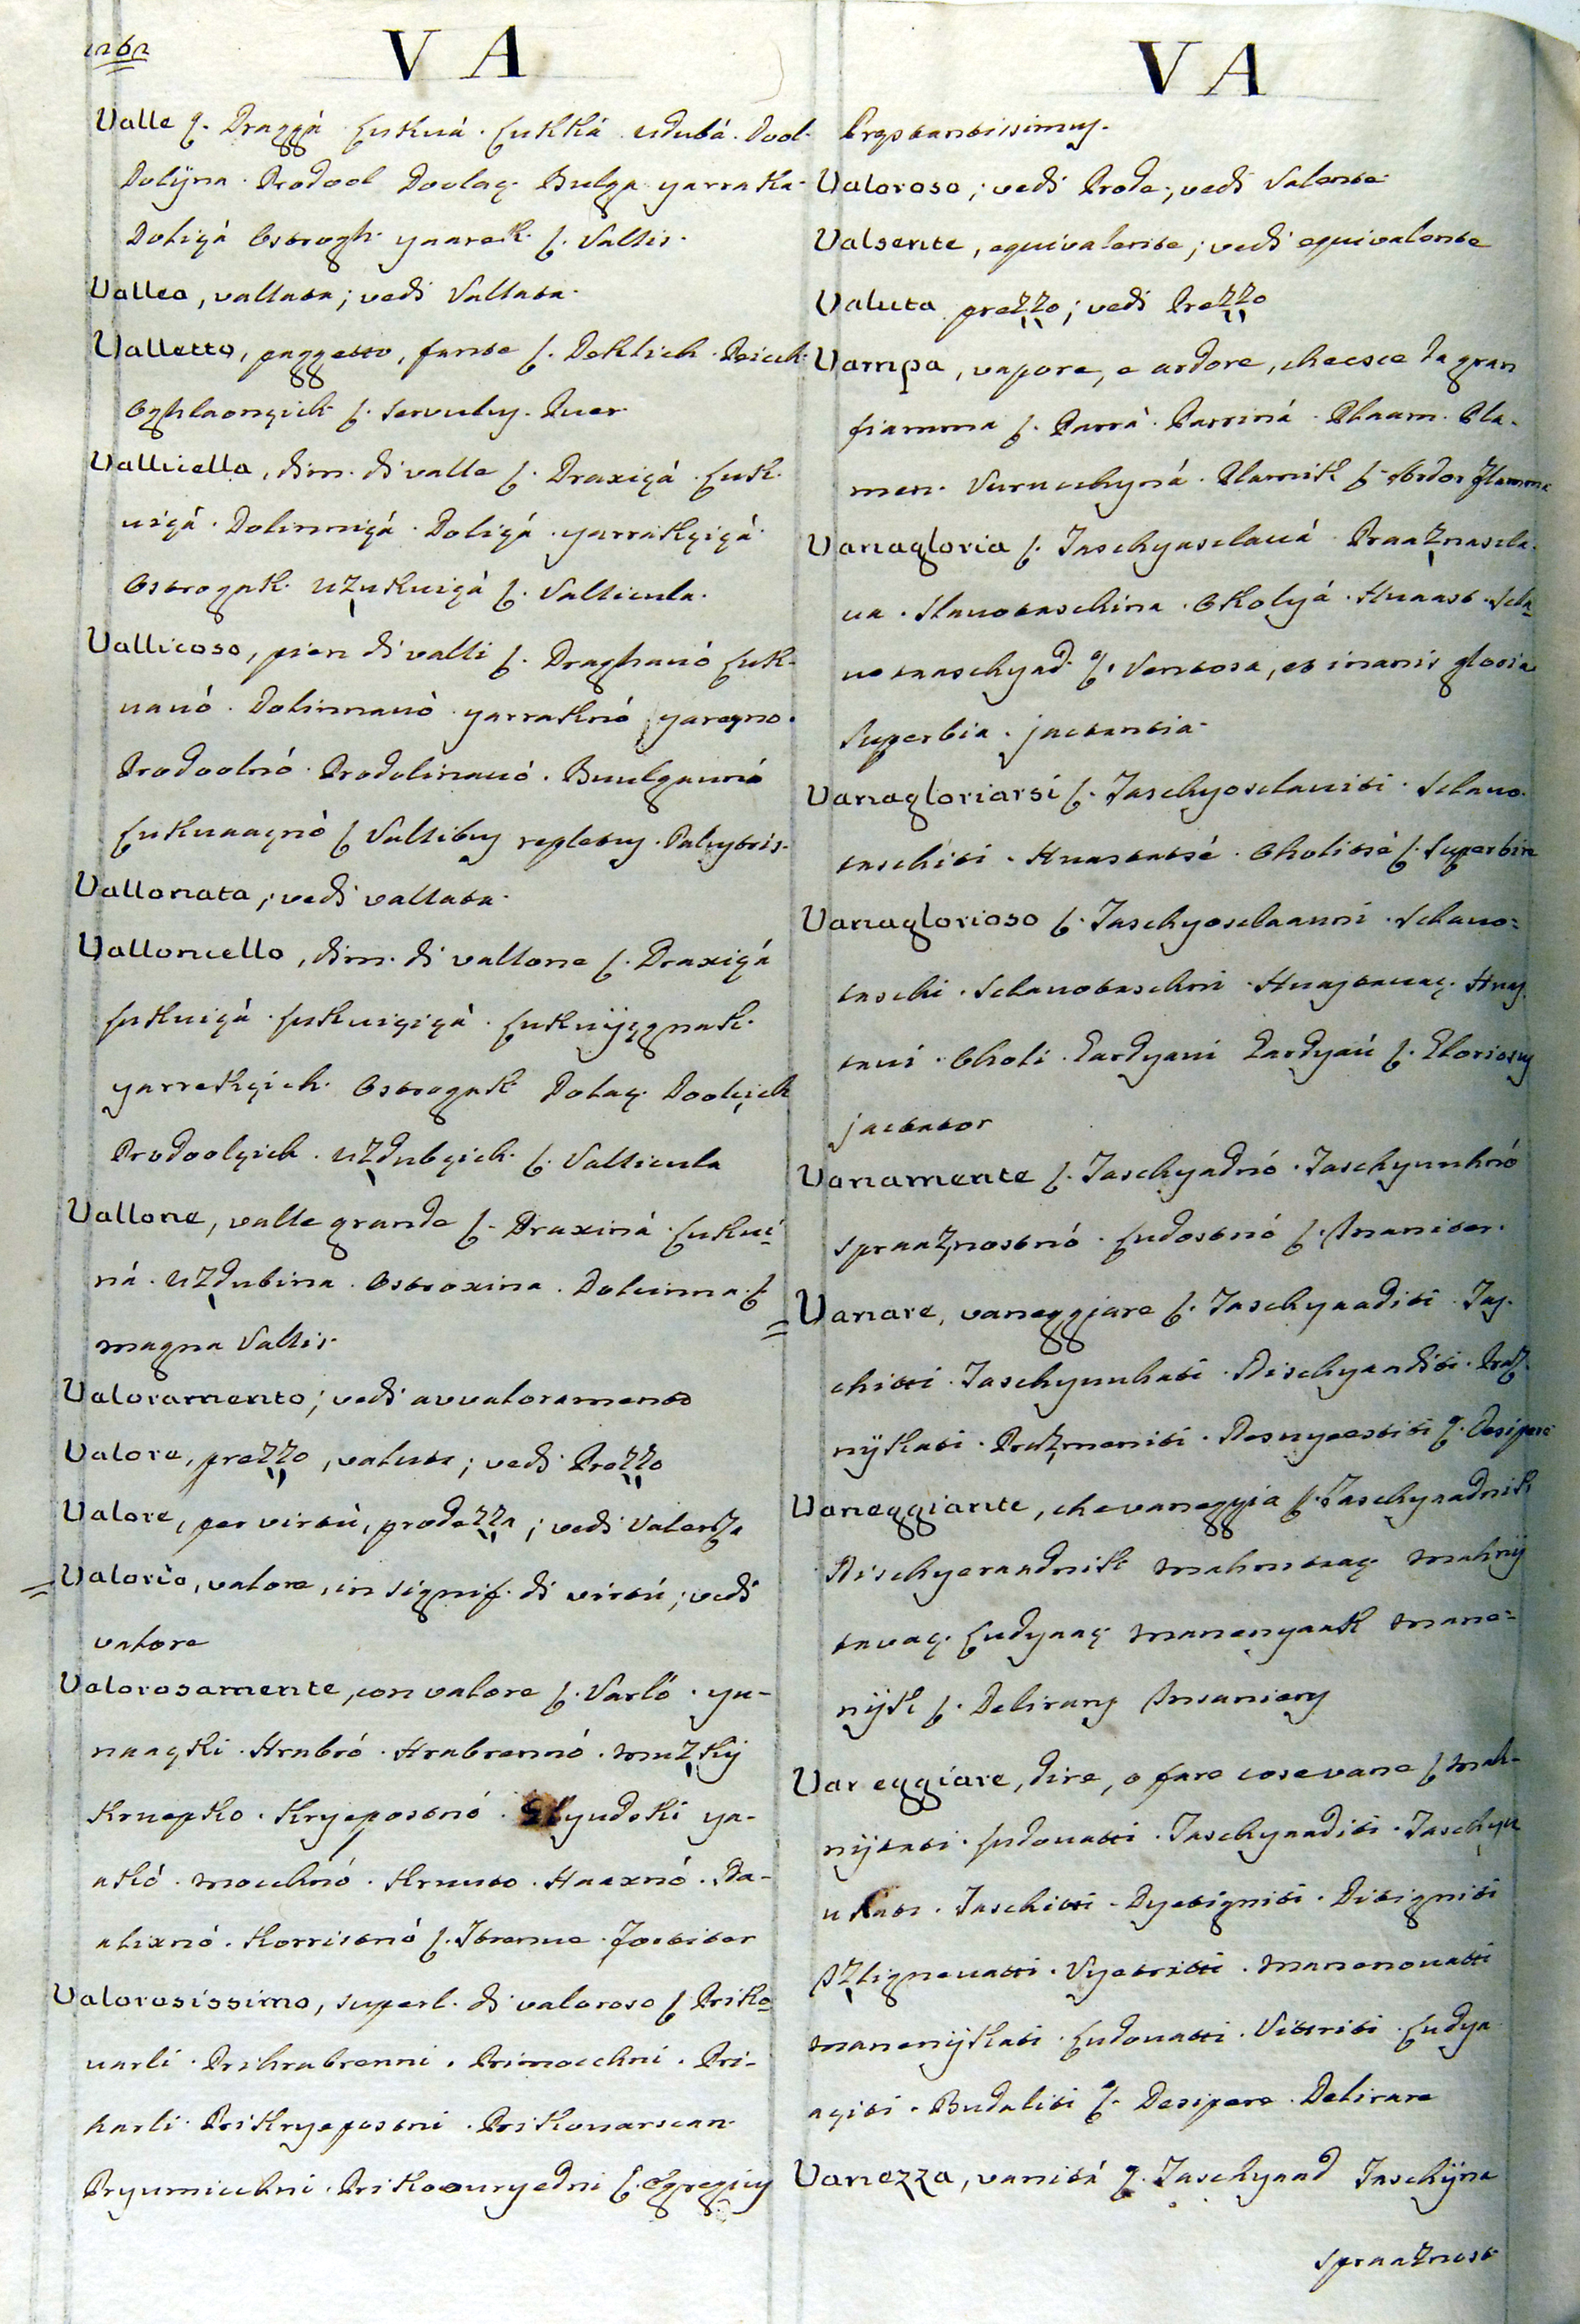 V A
Valle f. Draggá Lukuá. Lukká udubá. Dool.
Dolÿna. Prodool Doolaç. Bulga yarraka.
Doliçá Ostrogh. yaarek. f. Vallis.
Vallea, vallata; vedi Vallata.
Valletto, paggetto, fante f. Deklich. Deicch.
Oghlaonçich f. Servulus. Puer.
Vallicella, dim. di valle f. Draxiçá. Luk.
uiçá. Dolinniçá. Doliçá. yarrakçiçá.
Ostrogak. uzukuiçà f. Vallicula.
Vallicoso, pien di valli f. Draghauó Luk-
uauó. Dolinnauò yarraknó yareqno.
Prodoolnó. Prodolinauó. Buulgaunó
Lukuaaçnò f Vallibus repletus. Palustris.
Vallonata; vedi vallata.
Valloncello, dim. di vallone f. Draxiçá
Lukuiçá. Lukuiçiçà. Lukuÿçgnak.
yarrekçich. Ostrogak Dolaç. Doolçich
Prodoolçich. uzdubçich. f. Vallicula
Vallone, valle grande f. Draxiná. Lukui-
ná. uzdubina. Ostroxina. Doluinna. f
magna Vallis.
Valoramento; vedi avvaloramento
Valore, prezzo, valuta; vedi Prezzo
Valore, per virtù, prodezza; vedi Valenza
Valorio, valore, in signif. di virtú; vedi
valore
Valorosamente, con valore f. Varló. yu-
naaçki. Hrabró. Hrabrennó. muzkÿ
Kruepko. Kryepostnó. glyudski ya-
akó. mocchnó. Kruuto. Snaxnó. Da-
alixnó. Korristnó f. Strenue. Fortiter
Valorosissimo, superl. di valoroso f. Priko-
uarli. Prihrabrenni. Primocchni. Pri-
harli. Prikryepostni. Prikouarscan.
Pryumicchni. Prikoouryedni f. Egregius
V A
Prestantissimus.
Valoroso; vedi Prode; vedi Valente
Valsente, equivalente; vedi equivalente
Valuta prezzo; vedi Prezzo
Vampa, vapore, e ardore, che esce da gran
fiamma f. Parrà. Parriná. Plaam. Pla-
men. Vurucchyná. Plamik f. Ardor Flamma
Vanagloria f. Taschyasclauá Praaznascla.
ua. Slauotaschina. Oholyá. Huaast. Scla-
uotaaschyad. f. Ventosa, et inanis gloria
Superbia. jactantia.
Vanagloriarsi f. Taschyosclauiti. Sclauo.
taschiti. Huastatsé. Oholitsè f. Superbire
Vanaglorioso f. Taschyosclaauni. Sclauo-
taschi. Sclauotaschni. Huastauaç. Huas.
taui. Oholi. Gardyani Gardyaú f. Gloriosus
jactator
Vanamente f. Taschyadnó. Taschyuuhnó
spraaznostnó. Ludostnó f. Inaniter.
Vanare, vaneggiare f. Taschyaaditi. Tas.
chitti. Taschyuuhati. Dischyaaditi. Praz.
nÿkati. Prazmeniti. Nesuyeestiti f. Desipere
Vaneggiante, che vaneggia f. Taschyaadnik
Dischyeraadnik mahnitaaç mahnÿ
tavaç. Ludyaaç manenyaak mane-
nÿk f. Delirans Insaniens
Vaneggiare, dire, o fare cose vane f mah-
nÿtati. Ludouatti. Taschyaaditi. Taschyu
uhati. Taschitti. Dyetigniti. Ditigniti
Izlignevatti. Vyetritti. manenouatti
manenÿkati. Ludouatti. Vittriti. Ludya
açiti. Budaliti f. Desipere. Delirare
Vanezza, vanitá f. Taschyaad Taschÿna
spraaznost